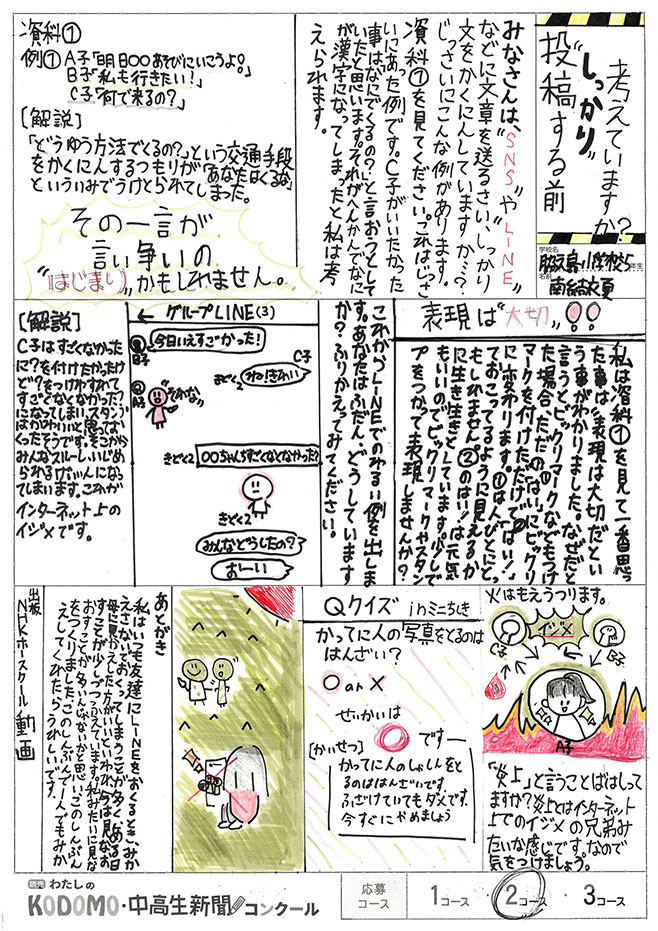 考えていますか?
"しっかり"
投稿する前
学校名
名前
みなさんは、"SNS"や"LINE"
などに文章を送るさい、しっかり
文をかくにんしていますか…?
じっさいにこんな例があります。
資料①を見てください。これはじっさ
いにあった例です。C子がいいたかった
事は「なにでくるの?」と言おうとして
いたと思います。それがへんかんでなに
が漢字になってしまったと私は考
えられます。
資料①
例① A子「明日〇〇あそびにいこうよ。」
B子「私も行きたい!」
C子「何で来るの?」
[解説]
「どうゆう方法でくるの?」という交通手段
をかくにんするつもりが「あなたはくるな」
といういみでうけとられてしまった。
その一言が
言い争いの
"はじまり"かもしれません。
表現は"大切"!!
私は資料①を見て一番思っ
た事は"表現は大切だ"とい
う事がわかりました。なぜだと
言うとビックリマークなどもつけ
た場合、ただの①「はい」にビックリ
マークを付けただけで②「はい!」
に変わります。①は人びとにとっ
ておこってるように見えるか
もしれません②のはい!は元気
に生き生きとしています。少しで
もいいのでビックリマークやスタン
プをつかって表現しませんか?
これからLINEでのわるい例を出しま
す。あなたはふだん、どうしています
か?ふりかえってみてください。
← グループLINE(3)
B子
今日いえすごかった!
C子
きどく2 ね!きれい
A子
"それな"
きどく2 〇〇ちゃんちすごくなくなかった?
きどく2
みんなどうしたの?
おーい
[解説]
C子はすごくなかった
に?を付けたかったけ
ど?をつけわすれて
すごくなくなかった?
になってしまい、スタンプ
はかわいいと思ってお
くったそうです。そこから
みんなスルーしいじめ
られるげんいんになっ
てしまいます。これが
インターネット上の
イジメです。
火はもえうつります。
イジメ
C子
B子
A子
「炎上」と言うことばはしって
ますか?炎上とはインターネット
上でのイジメの兄弟み
たいな感じです。なので
気をつけましょう。
Qクイズ inミニちしき
かってに人の写真をとるのは
はんざい?
○ or ×
せいかいは
○ です―
[かいせつ]
かってに人のしゃしんをと
るのははんざいです。
ふざけていてもダメです。
今すぐにやめましょう
あとがき
私はいつも友達にLINEをおくるとき、みか
えさないでおくってしまうことが多く、ある日
母に見かえした方がいいといわれ、今は見なお
すことが少しづつふえています。私みたいに見な
おすことが多いんじゃないかと思い、このしんぶん
をつくりました。このしんぶんで一人でもみか
えしてくれたらうれしいです。
出版
NHK ホースクール 動画
読売 わたしの
KODOMO・中高生新聞コンクール
応募
コース
1コース ・ 2コース ・ 3コース